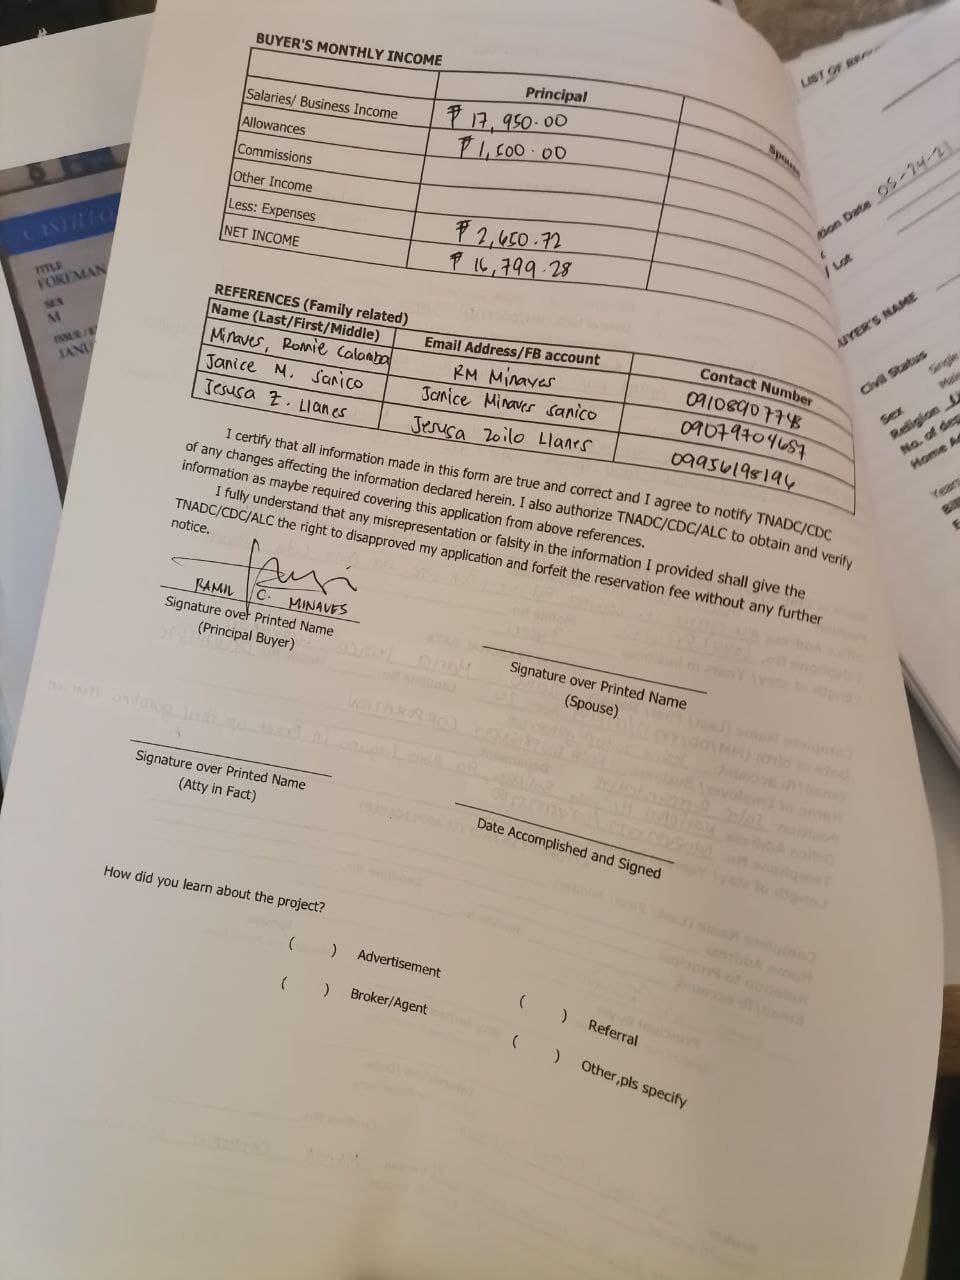 BUYER'S MONTHLY INCOME
Principal
Spouse
Salaries/ Business Income ₱ 17, 950.00
Allowances ₱ 1,500.00
Commissions
Other Income
Less: Expenses ₱ 2,650.72
NET INCOME ₱ 16,799.28
REFERENCES (Family related)
Name (Last/First/Middle) Email Address/FB account Contact Number
Minaves, Ronnie Calamba RM Minaves 09108907748
Janice M. Sanico Janice Minaves Sanico 09079704657
Jesusa Z. Llanes Jesusa Zoilo Llanes
I certify that all information made in this form are true and correct and I agree to notify TNADC/CDC
of any changes affecting the information declared herein. I also authorize TNADC/CDC/ALC to obtain and verify
information as maybe required covering this application from above references.
I fully understand that any misrepresentation or falsity in the information I provided shall give the
TNADC/CDC/ALC the right to disapproved my application and forfeit the reservation fee without any further
notice.
RAMIL C. MINAVES
Signature over Printed Name
(Principal Buyer)
Signature over Printed Name
(Spouse)
Signature over Printed Name
(Atty in Fact)
Date Accomplished and Signed
How did you learn about the project?
( ) Advertisement
( ) Broker/Agent
( ) Referral
( ) Other,pls specify
LIST OF
Date 05-24-21
Lot
NAME
Civil Status
Sex
Religion
No. of
Home
TITLE
FOREMAN
SEX
M